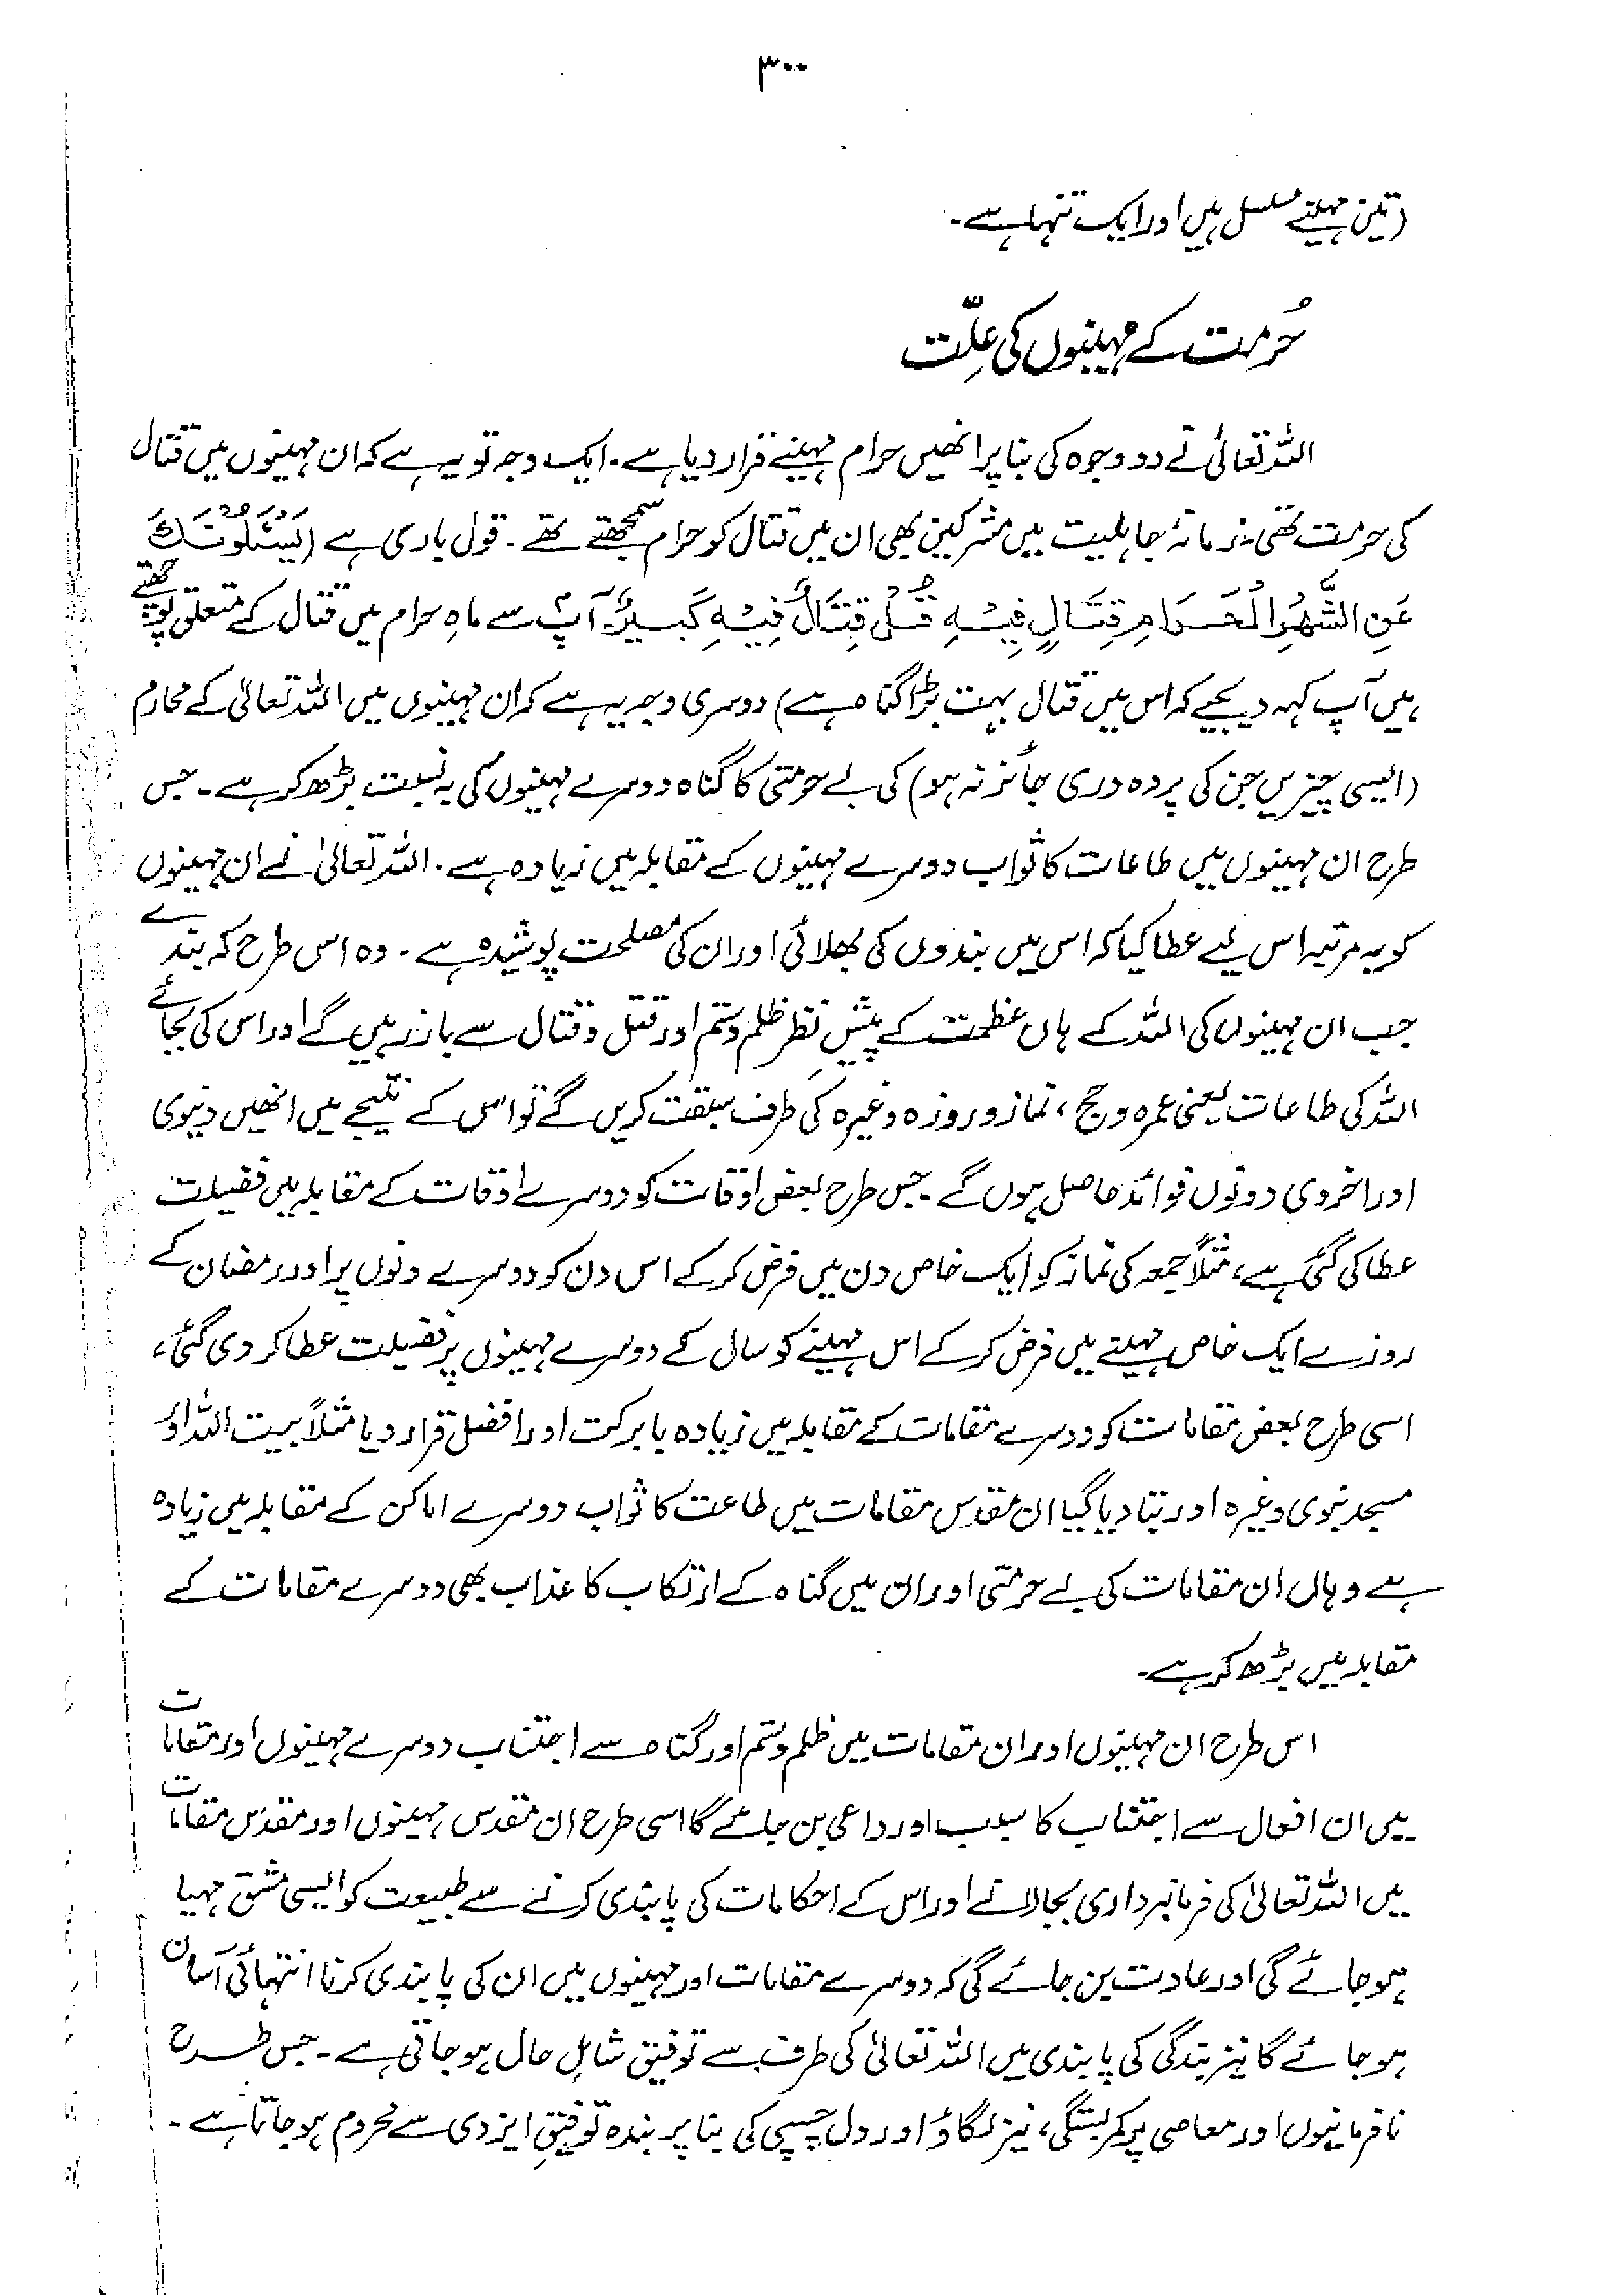 ۳۰۰
(تین مہینے مسلسل ہیں اور ایک تنہا ہے۔
حُرمت کے مہینوں کی علّت
اللہ تعالیٰ نے دو وجوہ کی بنا پر انھیں حرام مہینے قرار دیا ہے۔ ایک وجہ تو یہ ہے کہ ان مہینوں میں قتال
کی حرمت تھی۔ زمانۂ جاہلیت میں مشرکین بھی ان میں قتال کو حرام سمجھتے تھے۔ قول باری ہے (یَسْئَلُوْنَكَ
عَنِ الشَّهْرِ الْحَرَامِ قِتَالٍ فِیْهِ قُلْ قِتَالٌ فِیْهِ كَبِیْرٌ۔ آپؐ سے ماہِ حرام میں قتال کے متعلق پوچھتے
ہیں آپ کہہ دیجیے کہ اس میں قتال بہت بڑا گناہ ہے) دوسری وجہ یہ ہے کہ ان مہینوں میں اللہ تعالیٰ کے محارم
(ایسی چیزیں جن کی پردہ دری جائز نہ ہو) کی بے حرمتی کا گناہ دوسرے مہینوں کی بہ نسبت بڑھ کر ہے۔ جس
طرح ان مہینوں میں طاعات کا ثواب دوسرے مہینوں کے مقابلہ میں زیادہ ہے۔ اللہ تعالیٰ نے ان مہینوں
کو یہ مرتبہ اس لیے عطا کیا کہ اس میں بندوں کی بھلائی اور ان کی مصلحت پوشیدہ ہے۔ وہ اس طرح کہ بندے
جب ان مہینوں کی اللہ کے ہاں عظمت کے پیشِ نظر ظلم و ستم اور قتل و قتال سے باز رہیں گے اور اس کی بجائے
اللہ کی طاعات یعنی عمرہ و حج، نماز و روزہ وغیرہ کی طرف سبقت کریں گے تو اس کے نتیجے میں انھیں دنیوی
اور اخروی دونوں فوائد حاصل ہوں گے۔ جس طرح بعض اوقات کو دوسرے اوقات کے مقابلہ میں فضیلت
عطا کی گئی ہے، مثلاً جمعہ کی نماز کو ایک خاص دن میں فرض کر کے اس دن کو دوسرے دنوں پر اور رمضان کے
روزے ایک خاص مہینے میں فرض کر کے اس مہینے کو سال کے دوسرے مہینوں پر فضیلت عطا کر دی گئی،
اسی طرح بعض مقامات کو دوسرے مقامات کے مقابلہ میں زیادہ بابرکت اور افضل قرار دیا مثلاً بیت اللہ اور
مسجد نبوی وغیرہ اور بتا دیا گیا ان مقدس مقامات میں طاعت کا ثواب دوسرے اماکن کے مقابلہ میں زیادہ
ہے وہاں ان مقامات کی بے حرمتی اور ان میں گناہ کے ارتکاب کا عذاب بھی دوسرے مقامات کے
مقابلہ میں بڑھ کر ہے۔
اس طرح ان مہینوں اور ان مقامات میں ظلم و ستم اور گناہ سے اجتناب دوسرے مہینوں اور مقامات
میں ان افعال سے اجتناب کا سبب اور داعی بن جائے گا اسی طرح ان مقدس مہینوں اور مقدس مقامات
میں اللہ تعالیٰ کی فرمانبرداری بجا لانے اور اس کے احکامات کی پابندی کرنے سے طبیعت کو ایسی مشق مہیا
ہو جائے گی اور عادت بن جائے گی کہ دوسرے مقامات اور مہینوں میں ان کی پابندی کرنا انتہائی آسان
ہو جائے گا نیز بندگی کی پابندی میں اللہ تعالیٰ کی طرف سے توفیق شاملِ حال ہو جاتی ہے۔ جس طرح
نافرمانیوں اور معاصی پر کمربستگی، نیز لگاؤ اور دل چسپی کی بنا پر بندہ توفیقِ ایزدی سے محروم ہو جاتا ہے۔